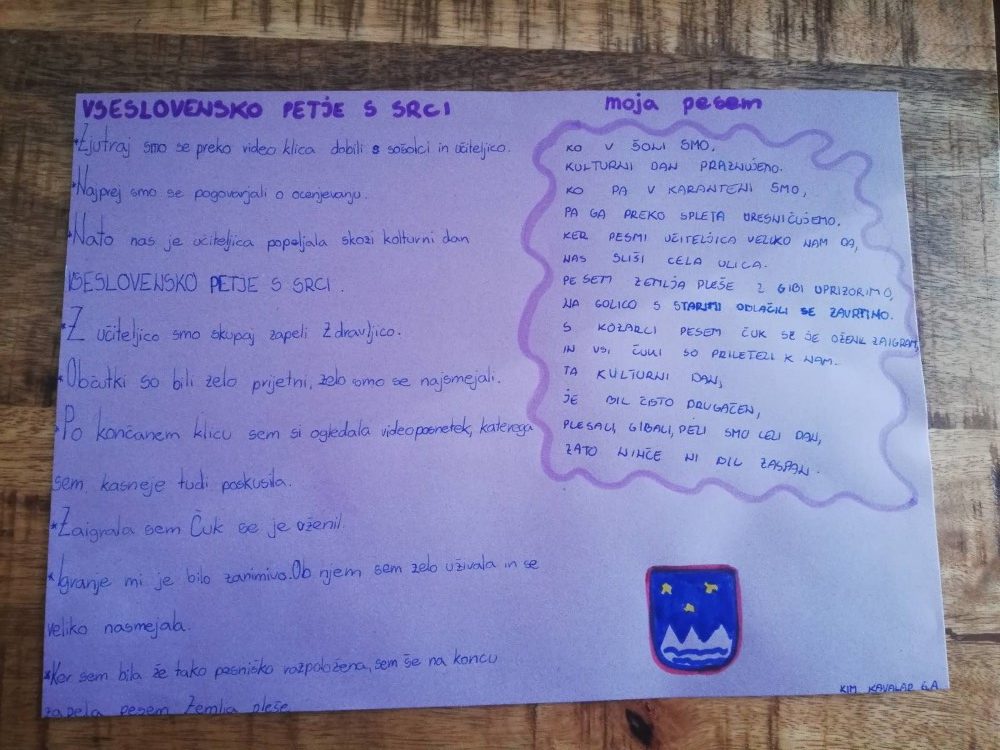 VSESLOVENSKO PETJE S SRCI
*Zjutraj smo se preko video klica dobili s sošolci in učiteljico.
*Najprej smo se pogovarjali o ocenjevanju.
*Nato nas je učiteljica popeljala skozi kolturni dan
VSESLOVENSKO PETJE S SRCI.
*Z učiteljico smo skupaj zapeli Zdravljico.
*Občutki so bili zelo prijetni, zelo smo se najsmejali.
*Po končanem klicu sem si ogledala videoposnetek, katerega
sem kasneje tudi poskusila.
*Zaigrala sem Čuk se je oženil.
*Igranje mi je bilo zanimivo. Ob njem sem zelo uživala in se
veliko nasmejala.
*Ker sem bila že tako pesniško razpoložena, sem še na koncu
zapela pesem Zemlja pleše
moja pesem
KO V ŠOLI SMO,
KULTURNI DAN PRAZNUJEMO.
KO PA V KARANTENI SMO,
PA GA PREKO SPLETA URESNIČUJEMO.
KER PESMI UČITELJICA VELIKO NAM DA,
NAS SLIŠI CELA ULICA.
PESEM ZEMLJA PLEŠE Z GIBI UPRIZORIMO,
NA GOLICO S STARIMI OBLAČILI SE ZAVRTIMO.
S KOZARCI PESEM ČUK SE JE OŽENIL ZAIGRAM,
IN VSI ČUKI SO PRILETELI K NAM.
TA KULTURNI DAN,
JE BIL ČISTO DRUGAČEN,
PLESALI, GIBALI, PELI SMO CELI DAN,
ZATO NIHČE NI BIL ZASPAN.
KIM KAVALAR 6.A